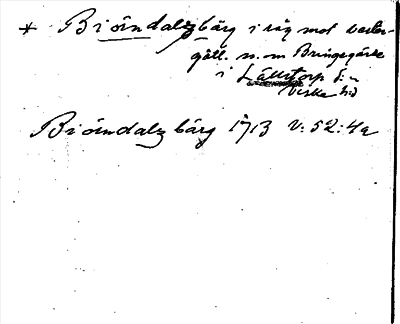 * Biörndalzbärg i råg mot Väster-
götl. n. om Bringegärde
i Lällstorp s:n
Viska hd
Biörndalz bärg 1713 V: 52: 4a